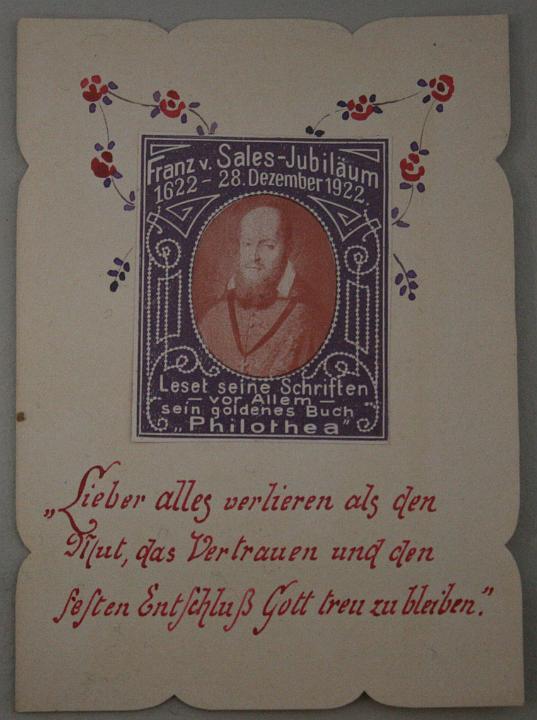 Franz v. Sales-Jubiläum
1622 - 28. Dezember 1922.
Leset seine Schriften
- vor Allem -
sein goldenes Buch
„Philothea"
„Lieber alles verlieren als den
Mut, das Vertrauen und den
feſten Entſchluß Gott treu zu bleiben."